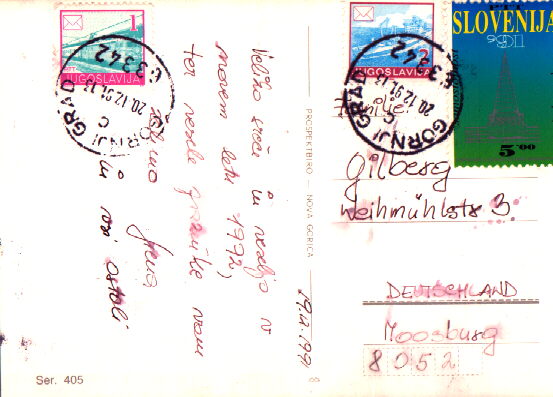 1
JUGOSLAVIJA
GORNJI GRAD
63342
20.12.91.13
C
2
JUGOSLAVIJA
GORNJI GRAD
63342
20.12.91.13
C
SLOVENIJA
5.00
Veliko sreče in veselja v
novem letu 1992,
ter vesele praznike vam
želimo
in vsi ostali
19.12.1991
PROSPEKTBIRO — NOVA GORICA
Gilberg
Weihmühlstr 3
DEUTSCHLAND
Moosburg
8052
Ser. 405